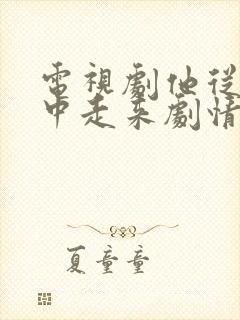 電視劇他從
中走來劇情
夏童童